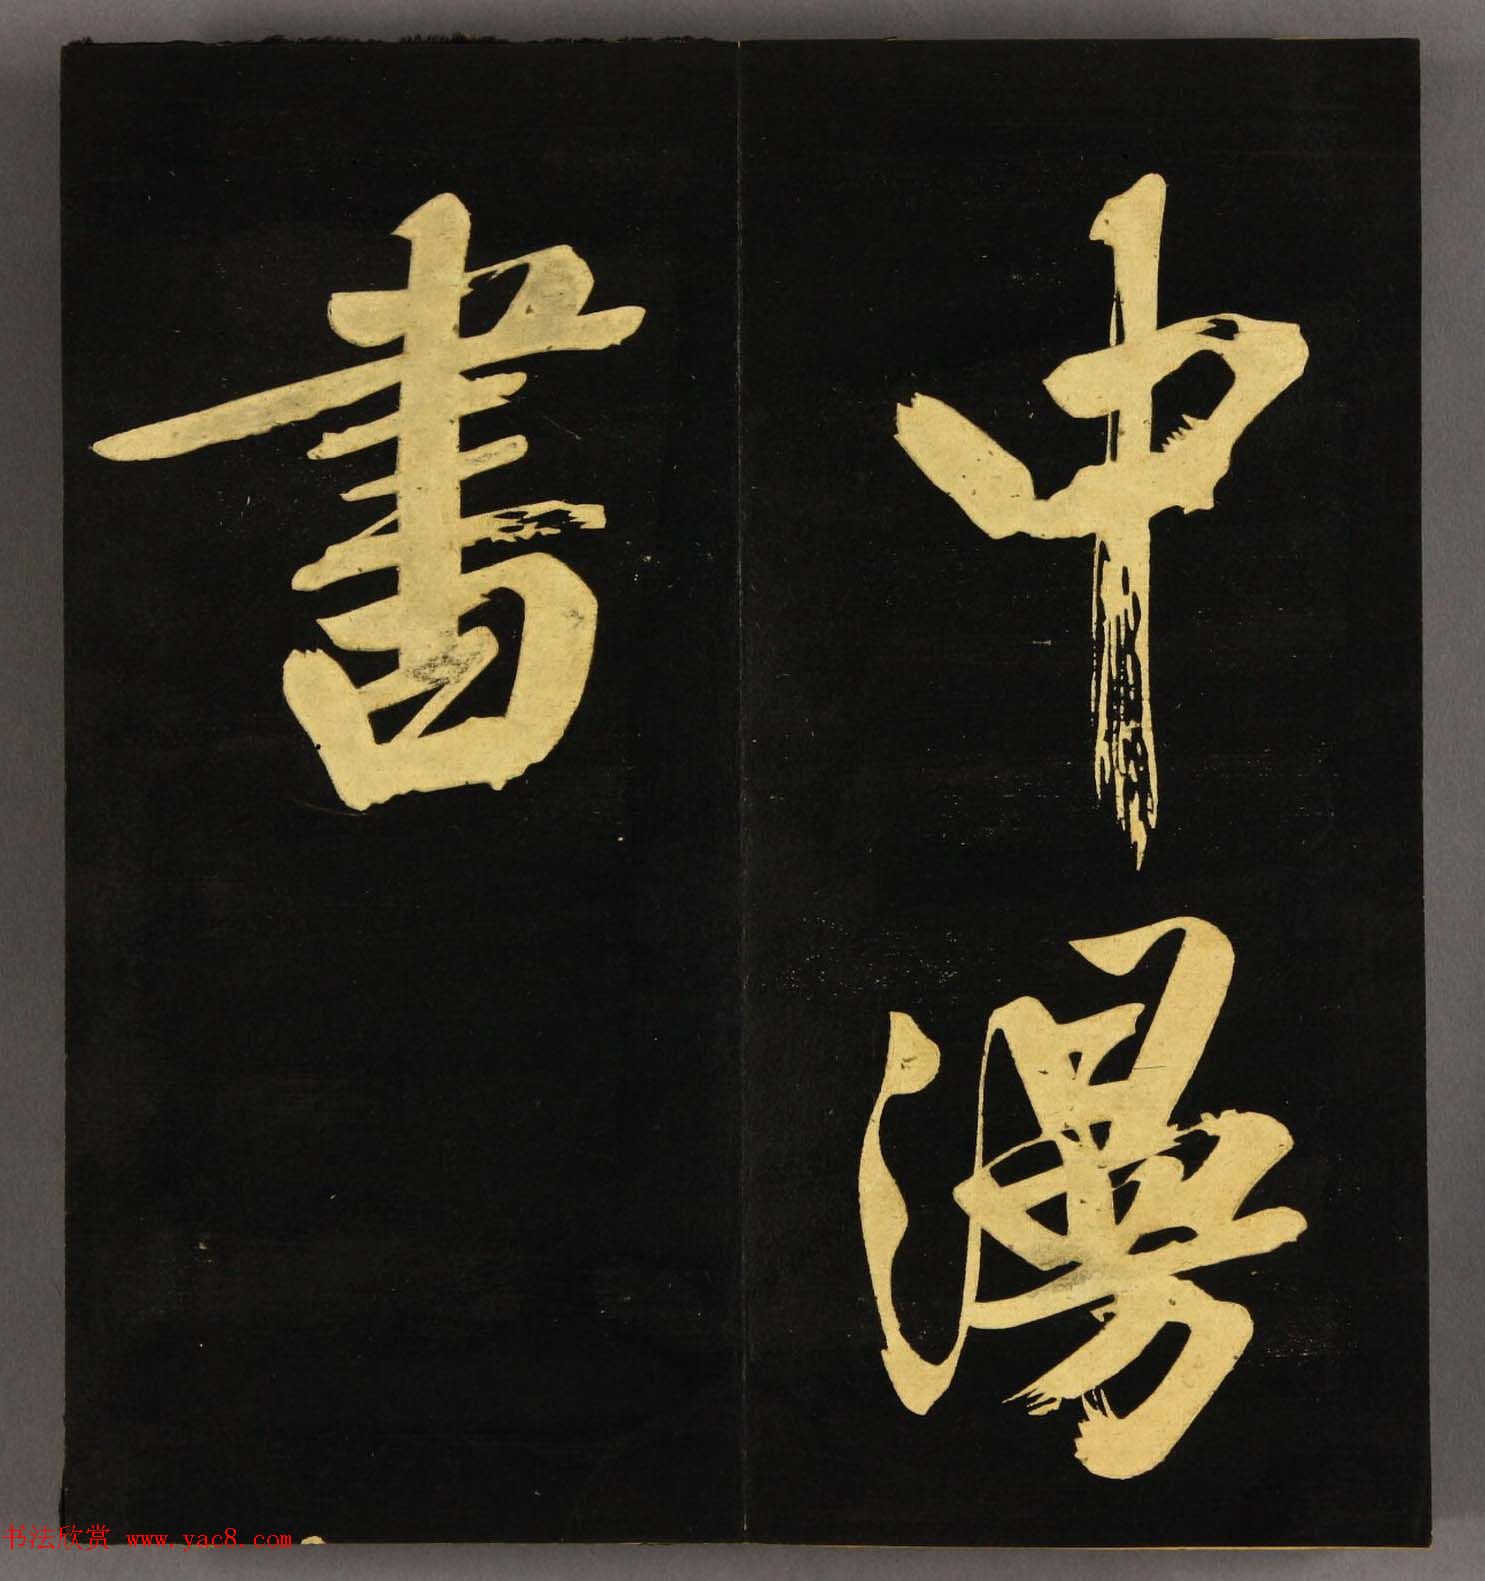 中漫
書
书法欣赏 www.yac8.com